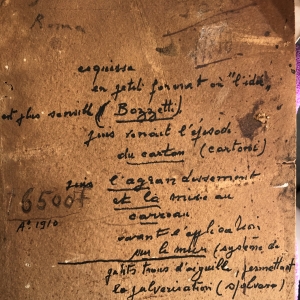 Roma
esquisse
en petit format où "l'idée
est plus sensible (Bozzetti)
puis venait l'épisode
du carton (cartoni)
puis l'agrandissement
et la mise au
carreau
avant l'application
sur le mur (système de
petits trous d'aiguille, permettant
la pulvérisation (spolvero)
6500f
A° 1910